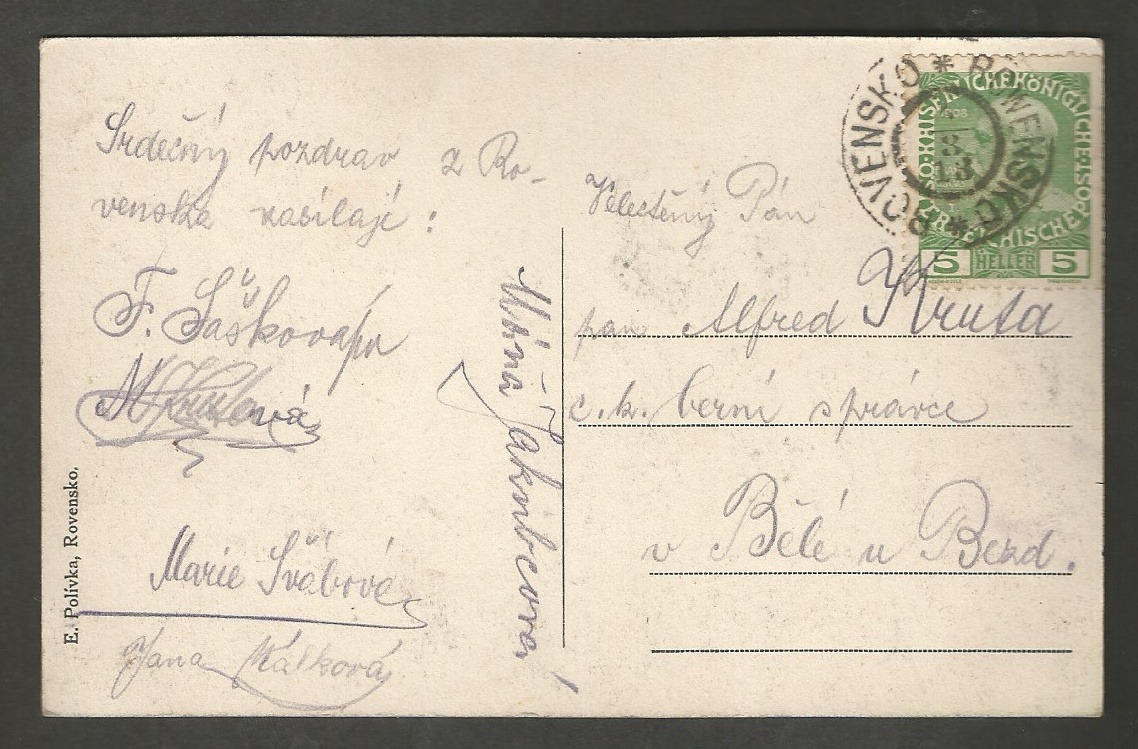 Srdečný pozdrav z Ro-
venska zasílají:
F. Šaškova
Marie Švábová
Jana Kálková
Míňa Jakubcová
E. Polívka, Rovensko.
Velectěný Pán
pan Alfred Kruta
c.k. berní správce
v Bělé u Bezd.
ROVENSKO * ROWENSKO *
8
13
KAISERLICHE KÖNIGLICHE
ÖSTERREICHISCHE POST
1908
5 HELLER 5